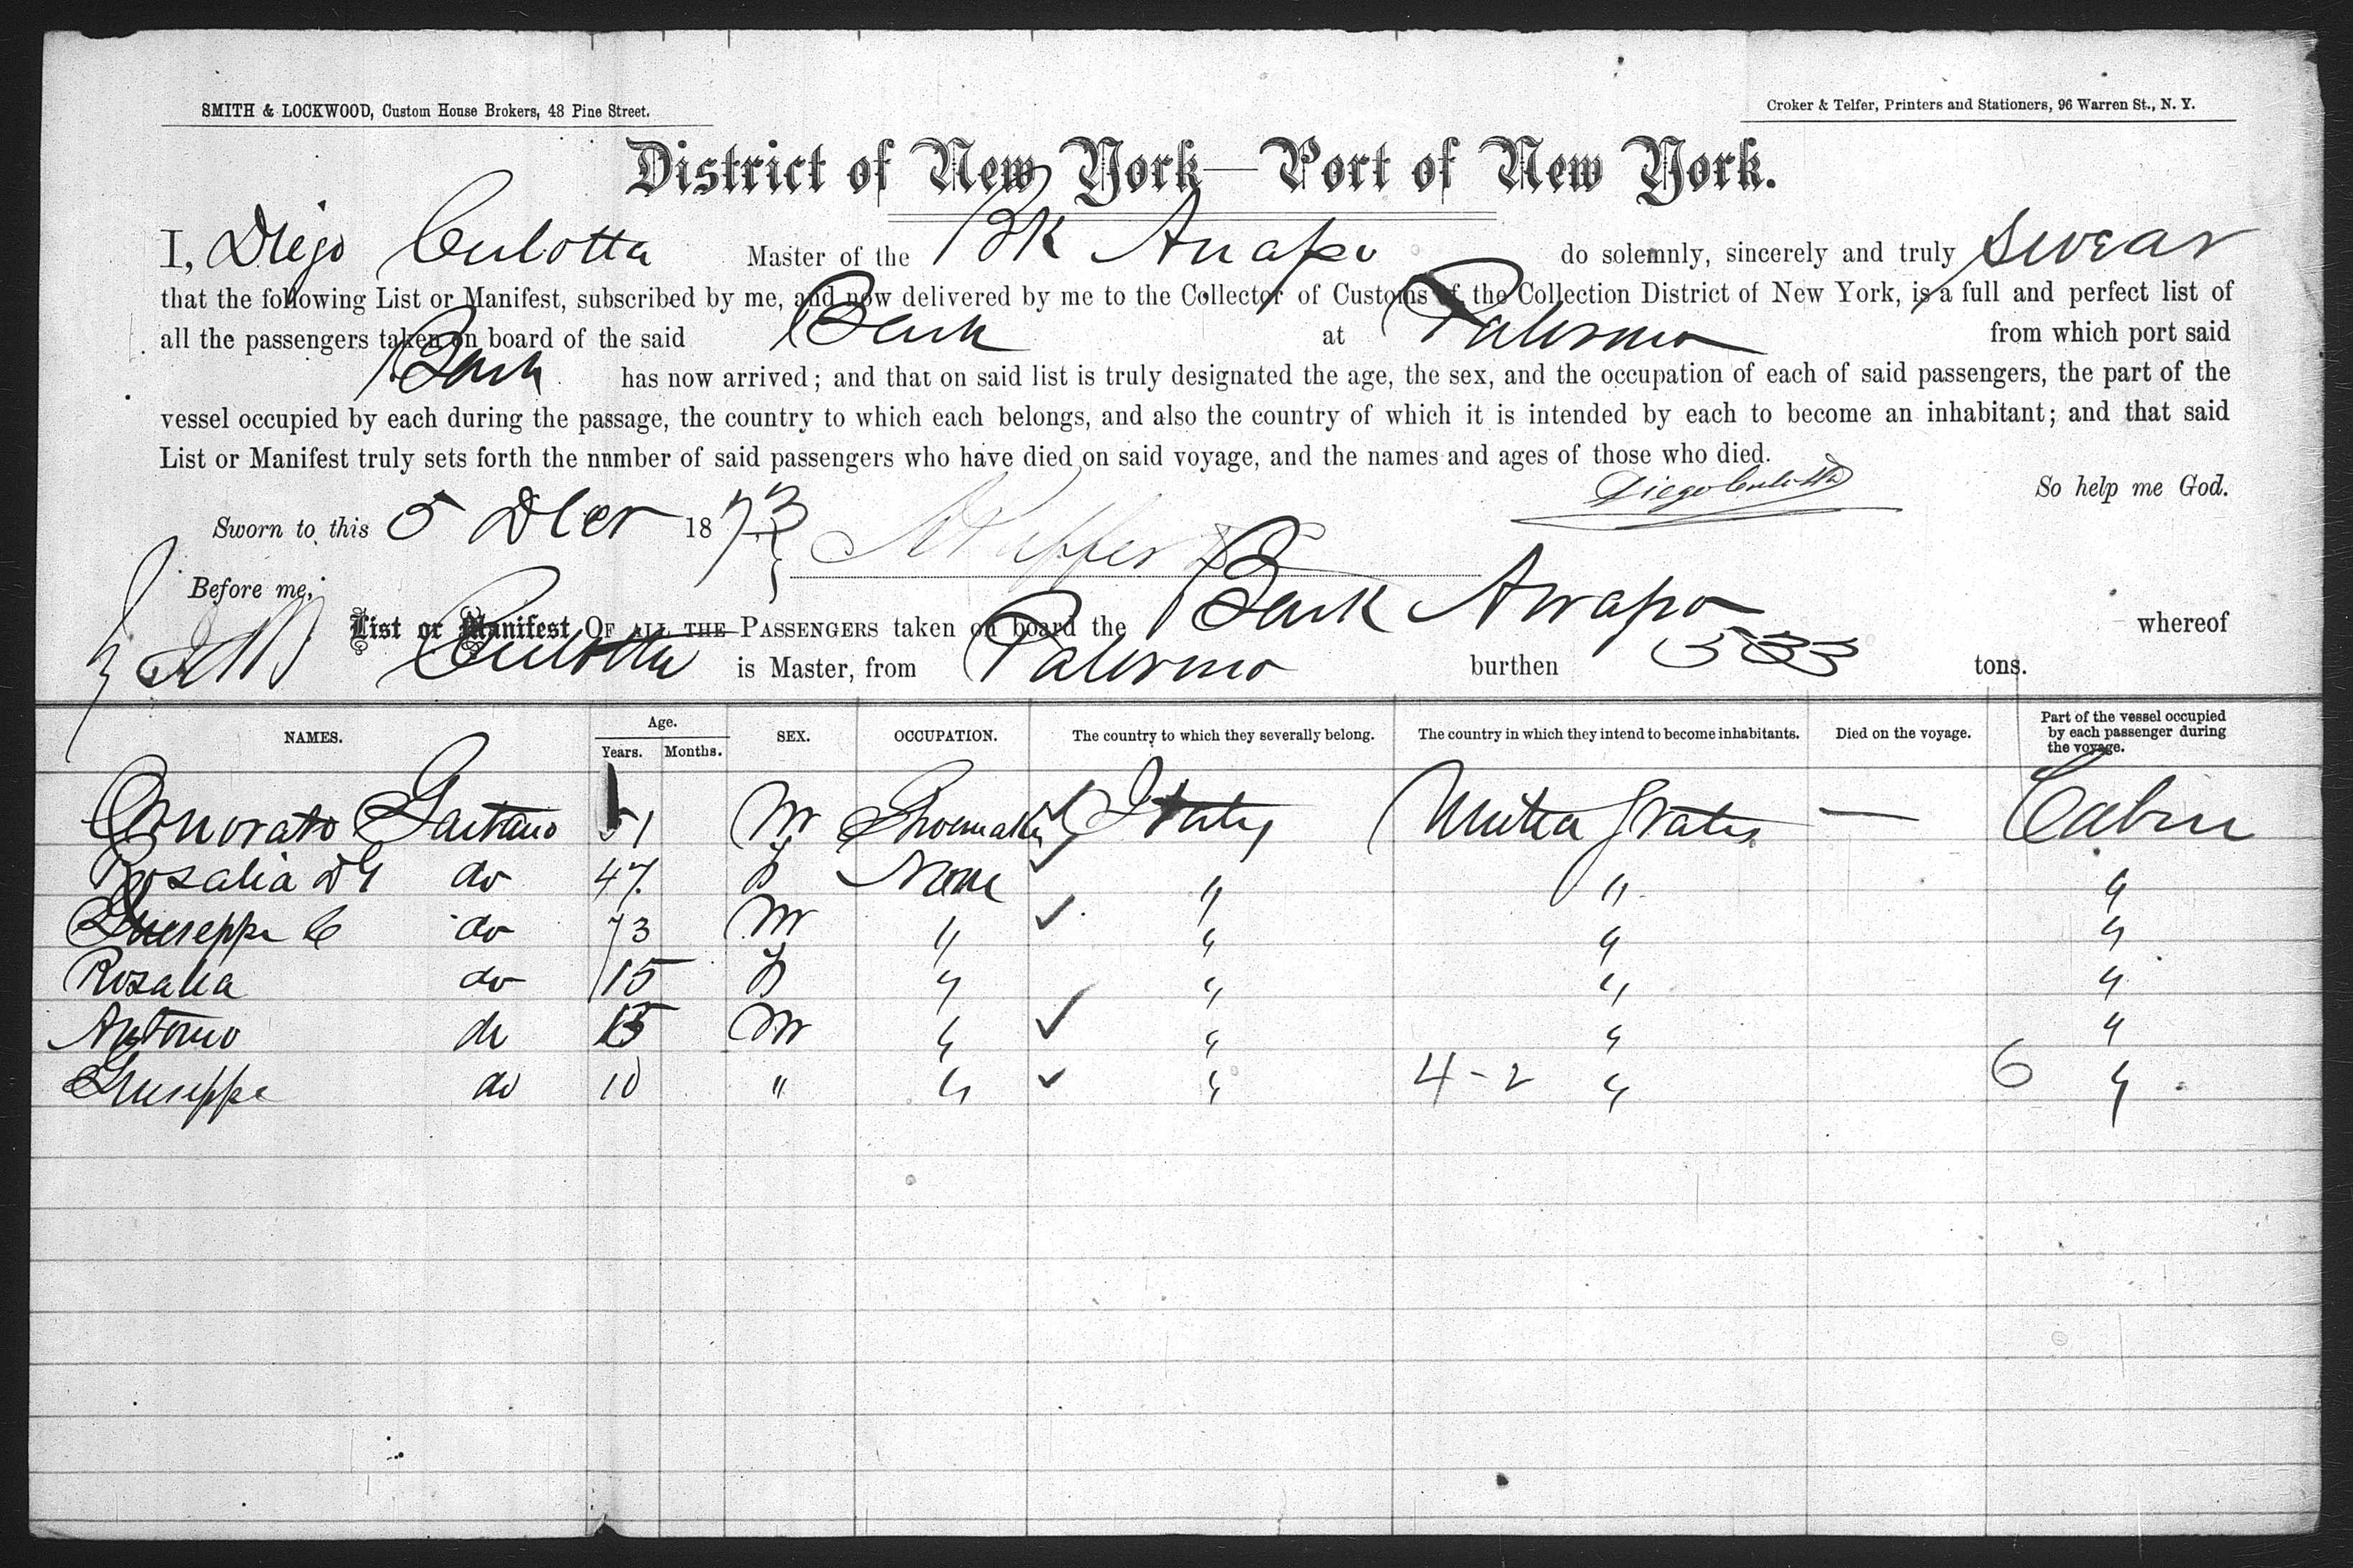 SMITH & LOCKWOOD, Custom House Brokers, 48 Pine Street.
Croker & Telfer, Printers and Stationers, 96 Warren St., N. Y.
District of New York—Port of New York.
I, Diego Culotta Master of the Bk Anapo do solemnly, sincerely and truly swear
that the following List or Manifest, subscribed by me, and now delivered by me to the Collector of Customs of the Collection District of New York, is a full and perfect list of
all the passengers taken on board of the said Bark at Palermo from which port said
Bark has now arrived; and that on said list is truly designated the age, the sex, and the occupation of each of said passengers, the part of the
vessel occupied by each during the passage, the country to which each belongs, and also the country of which it is intended by each to become an inhabitant; and that said
List or Manifest truly sets forth the number of said passengers who have died on said voyage, and the names and ages of those who died.
Diego Culotta So help me God.
Sworn to this 5 Dber 1873
Before me,
List or Manifest OF ALL THE PASSENGERS taken on board the Bark Anapo whereof
Culotta is Master, from Palermo burthen 533 tons.
NAMES. Age. Years. Months. SEX. OCCUPATION. The country to which they severally belong. The country in which they intend to become inhabitants. Died on the voyage. Part of the vessel occupied by each passenger during the voyage.
Onorato Gaetano 51 M Shoemaker Italy United States — Cabin
Rosalia DG do 47 F None " " "
Giuseppe C do 73 M " " " "
Rosalia do 15 F " " " "
Antonio do 15 M " " " "
Giuseppe do 10 " " " 4-2 " 6 "